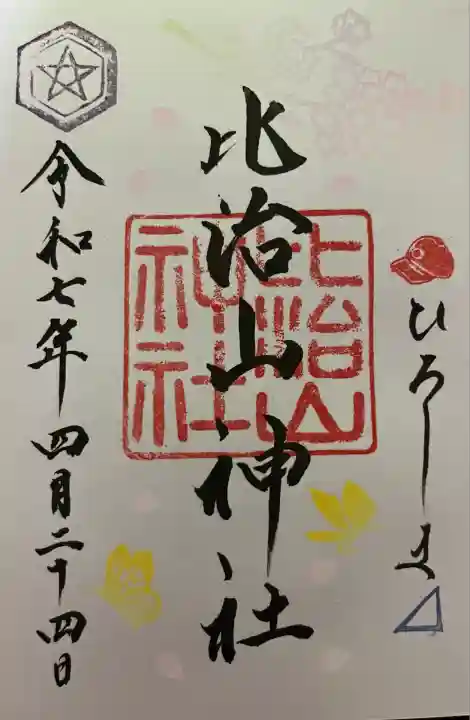 ひろしま
比治山神社
比治山
神社
令和七年四月二十四日